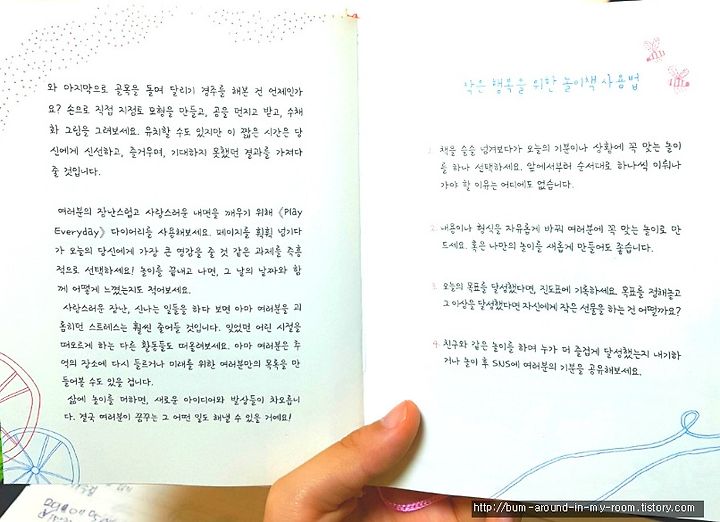 와 마지막으로 골목을 돌며 달리기 경주를 해본 건 언제인가
요? 손으로 직접 지점토 모형을 만들고, 공을 던지고 받고, 수채
화 그림을 그려보세요. 유치할 수도 있지만 이 짧은 시간은 당
신에게 신선하고, 즐거우며, 기대하지 못했던 결과를 가져다
줄 것입니다.
여러분의 장난스럽고 사랑스러운 내면을 깨우기 위해 《Play
Everyday》 다이어리를 사용해보세요. 페이지를 휙휙 넘기다
가 오늘의 당신에게 가장 큰 영감을 줄 것 같은 과제를 즉흥
적으로 선택하세요! 놀이를 끝내고 나면, 그 날의 날짜와 함
께 어떻게 느꼈는지도 적어보세요.
사랑스러운 장난, 신나는 일들을 하다 보면 아마 여러분을 괴
롭히던 스트레스는 훨씬 줄어들 것입니다. 잊었던 어린 시절을
떠오르게 하는 다른 활동들도 떠올려보세요. 아마 여러분은 추
억의 장소에 다시 들르거나 미래를 위한 여러분만의 목록을 만
들어볼 수도 있을 겁니다.
삶에 놀이를 더하면, 새로운 아이디어와 발상들이 차오릅니
다. 결국 여러분이 꿈꾸는 그 어떤 일도 해낼 수 있을 거예요!
작은 행복을 위한 놀이책 사용법
1. 책을 슬슬 넘겨보다가 오늘의 기분이나 상황에 꼭 맞는 놀이
를 하나 선택하세요. 앞에서부터 순서대로 하나씩 이뤄나
가야 할 이유는 어디에도 없습니다.
2. 내용이나 형식을 자유롭게 바꿔 여러분에 꼭 맞는 놀이로 만
드세요. 혹은 나만의 놀이를 새롭게 만들어도 좋습니다.
3. 오늘의 목표를 달성했다면, 진도표에 기록하세요. 목표를 정해놓고
그 이상을 달성했다면 자신에게 작은 선물을 하는 건 어떨까요?
4. 친구와 같은 놀이를 하며 누가 더 즐겁게 달성했는지 내기하
거나 놀이 후 SNS에 여러분의 기분을 공유해보세요.
http://bum-around-in-my-room.tistory.com